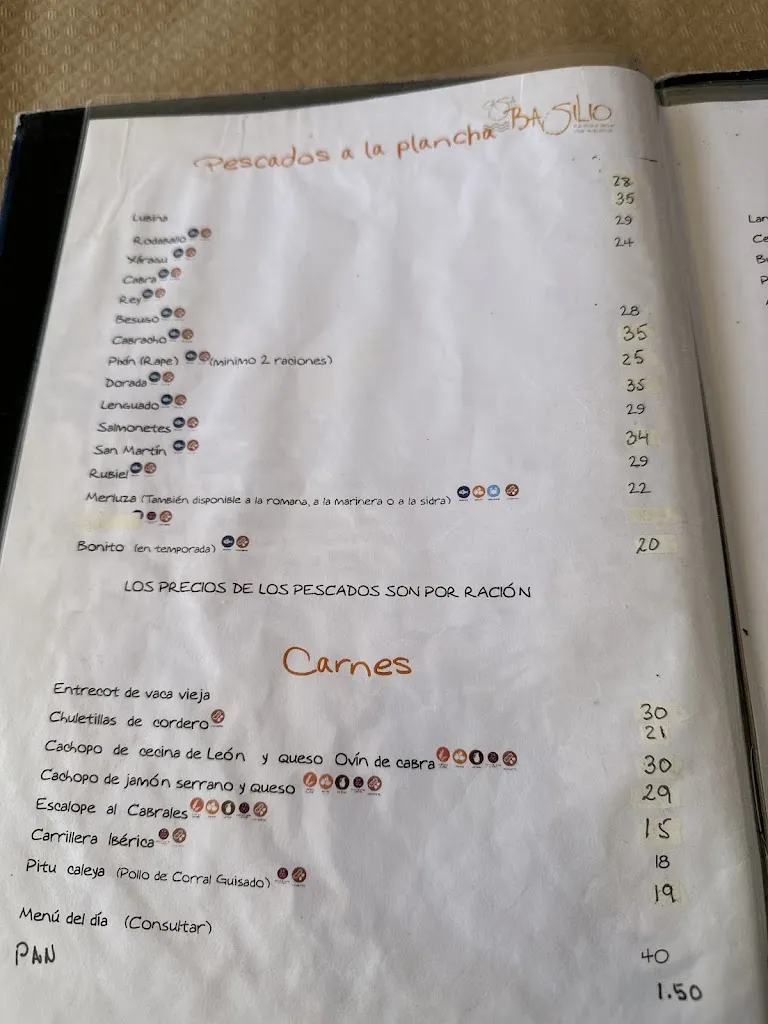 CASA BASILIO
Pescados a la plancha
Lubina 28
Rodaballo 35
Xáragu 29
Cabra 24
Rey
Besugo
Cabracho 28
Pixín (Rape) (minimo 2 raciones) 35
Dorada 25
Lenguado 35
Salmonetes 29
San Martín 34
Rubiel 29
Merluza (También disponible a la romana, a la marinera o a la sidra) 22
Bonito (en temporada) 20
LOS PRECIOS DE LOS PESCADOS SON POR RACIÓN
Carnes
Entrecot de vaca vieja 30
Chuletillas de cordero 21
Cachopo de cecina de León y queso Ovín de cabra 30
Cachopo de jamón serrano y queso 29
Escalope al Cabrales 15
Carrillera Ibérica 18
Pitu caleya (Pollo de Corral Guisado) 19
Menú del día (Consultar) 40
PAN 1.50